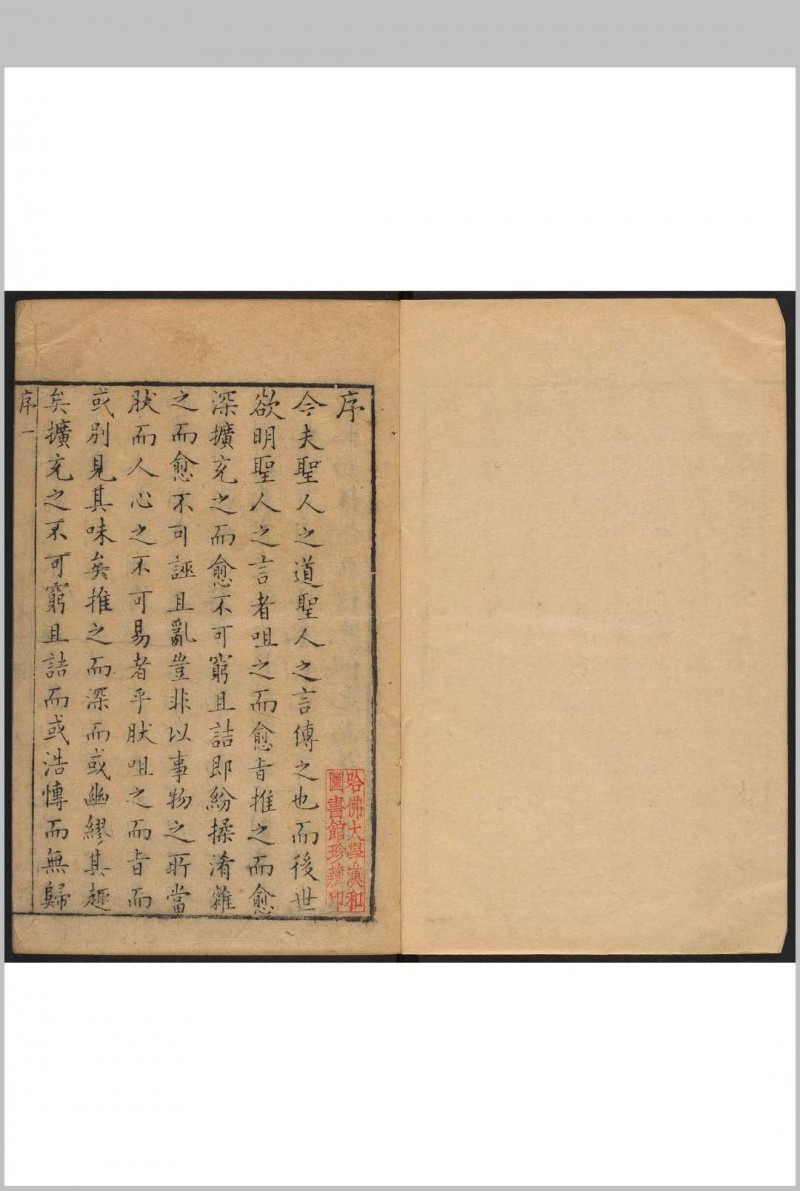 序
今夫聖人之道聖人之言傳之也而後世
欲明聖人之言者咀之而愈旨推之而愈
深擴充之而愈不可窮且詰即紛揉淆雜
之而愈不可誣且亂豈非以事物之所當
肰而人心之不可易者乎肰咀之而旨而
或別見其味矣推之而深而或幽繆其趣
矣擴充之不可窮且詰而或浩慱而無歸
序一
哈佛大學漢和
圖書館珍藏印